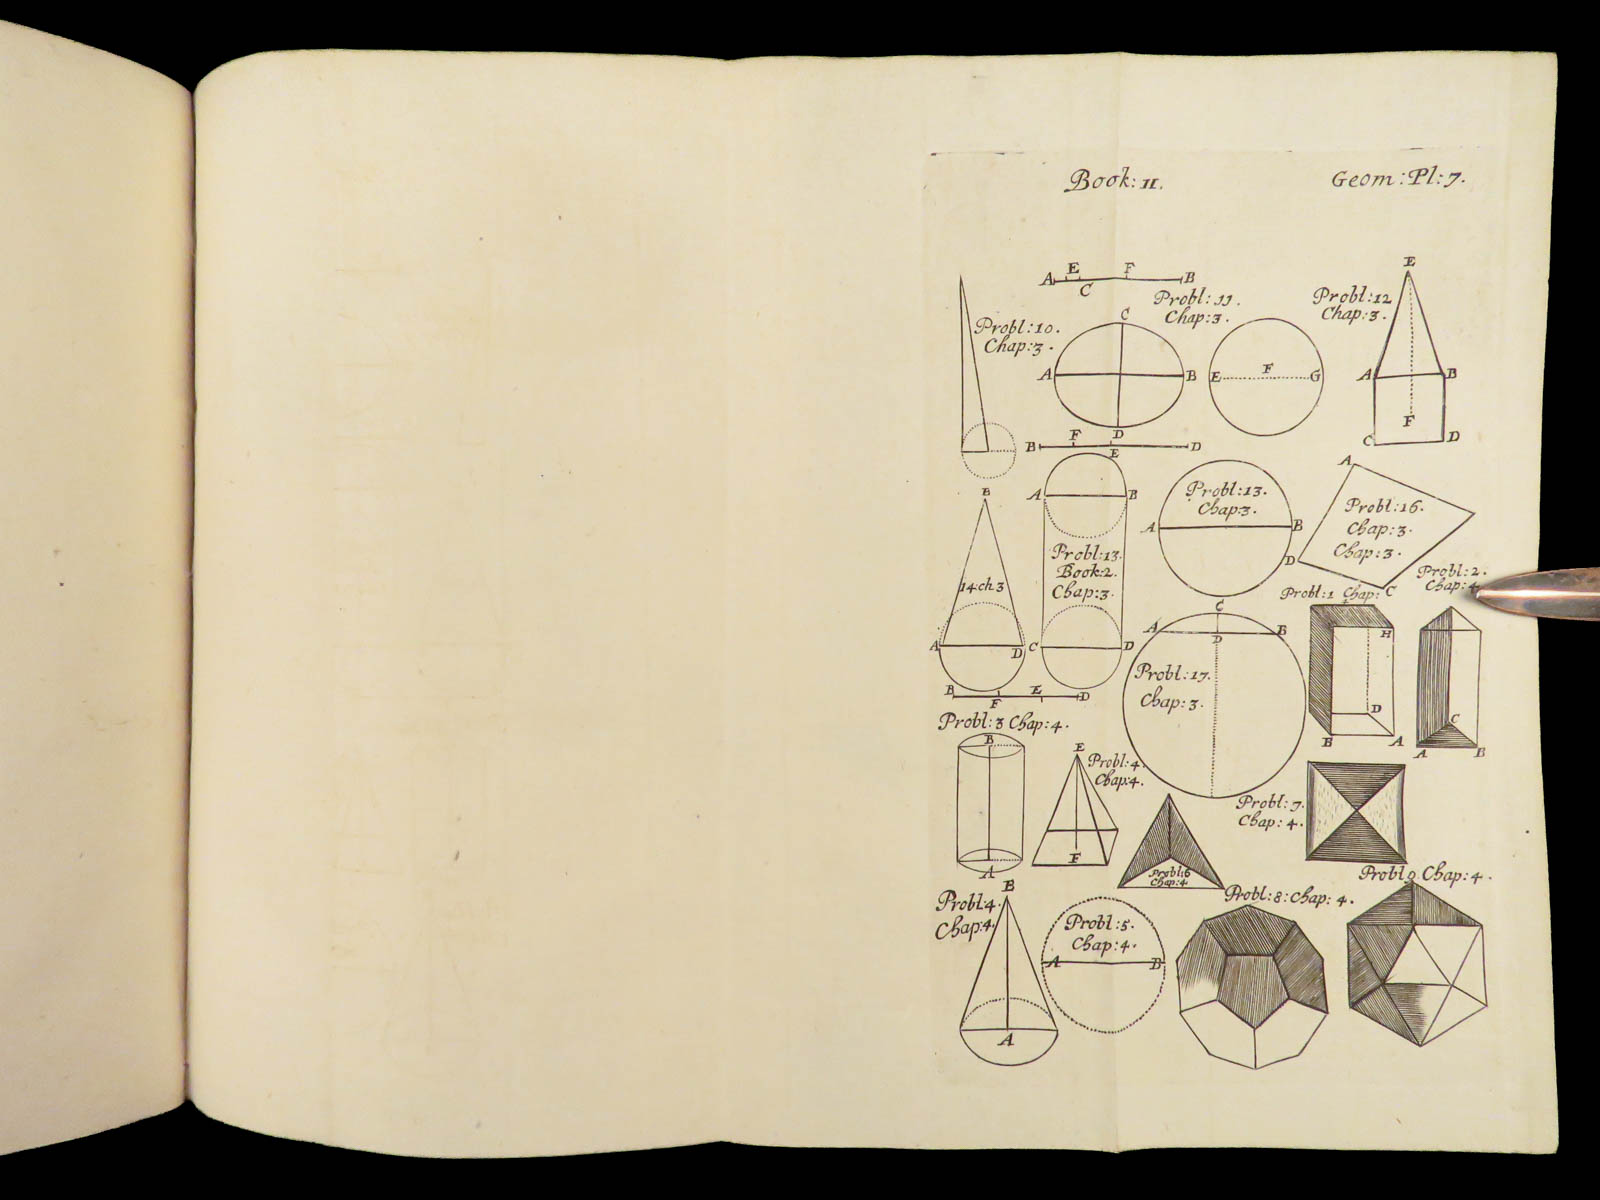 Book: II.
Geom: Pl: 7.
A E C F B
Probl: 10.
Chap: 3.
Probl: 11.
Chap: 3.
C
A B
D
E F G
Probl: 12
Chap: 3.
E
A B
F
C D
B F E D
A B
Probl: 13.
Book: 2.
Chap: 3.
C D
Probl: 13.
Chap: 3.
A B
A
Probl: 16.
Chap: 3.
Chap: 3.
D C
B
14 ch 3
A D
B F E D
C
A D B
Probl: 17.
Chap: 3.
Probl: 1 Chap:
H
D
B A
Probl: 2.
Chap: 4
C
A B
Probl: 3 Chap: 4.
B
A
E
Probl: 4.
Chap: 4.
F
Probl: 6
Chap: 4
Probl: 7.
Chap: 4.
Probl: 4.
Chap: 4.
B
A
Probl: 5.
Chap: 4.
A B
Probl: 8: Chap: 4.
Probl 9 Chap: 4.